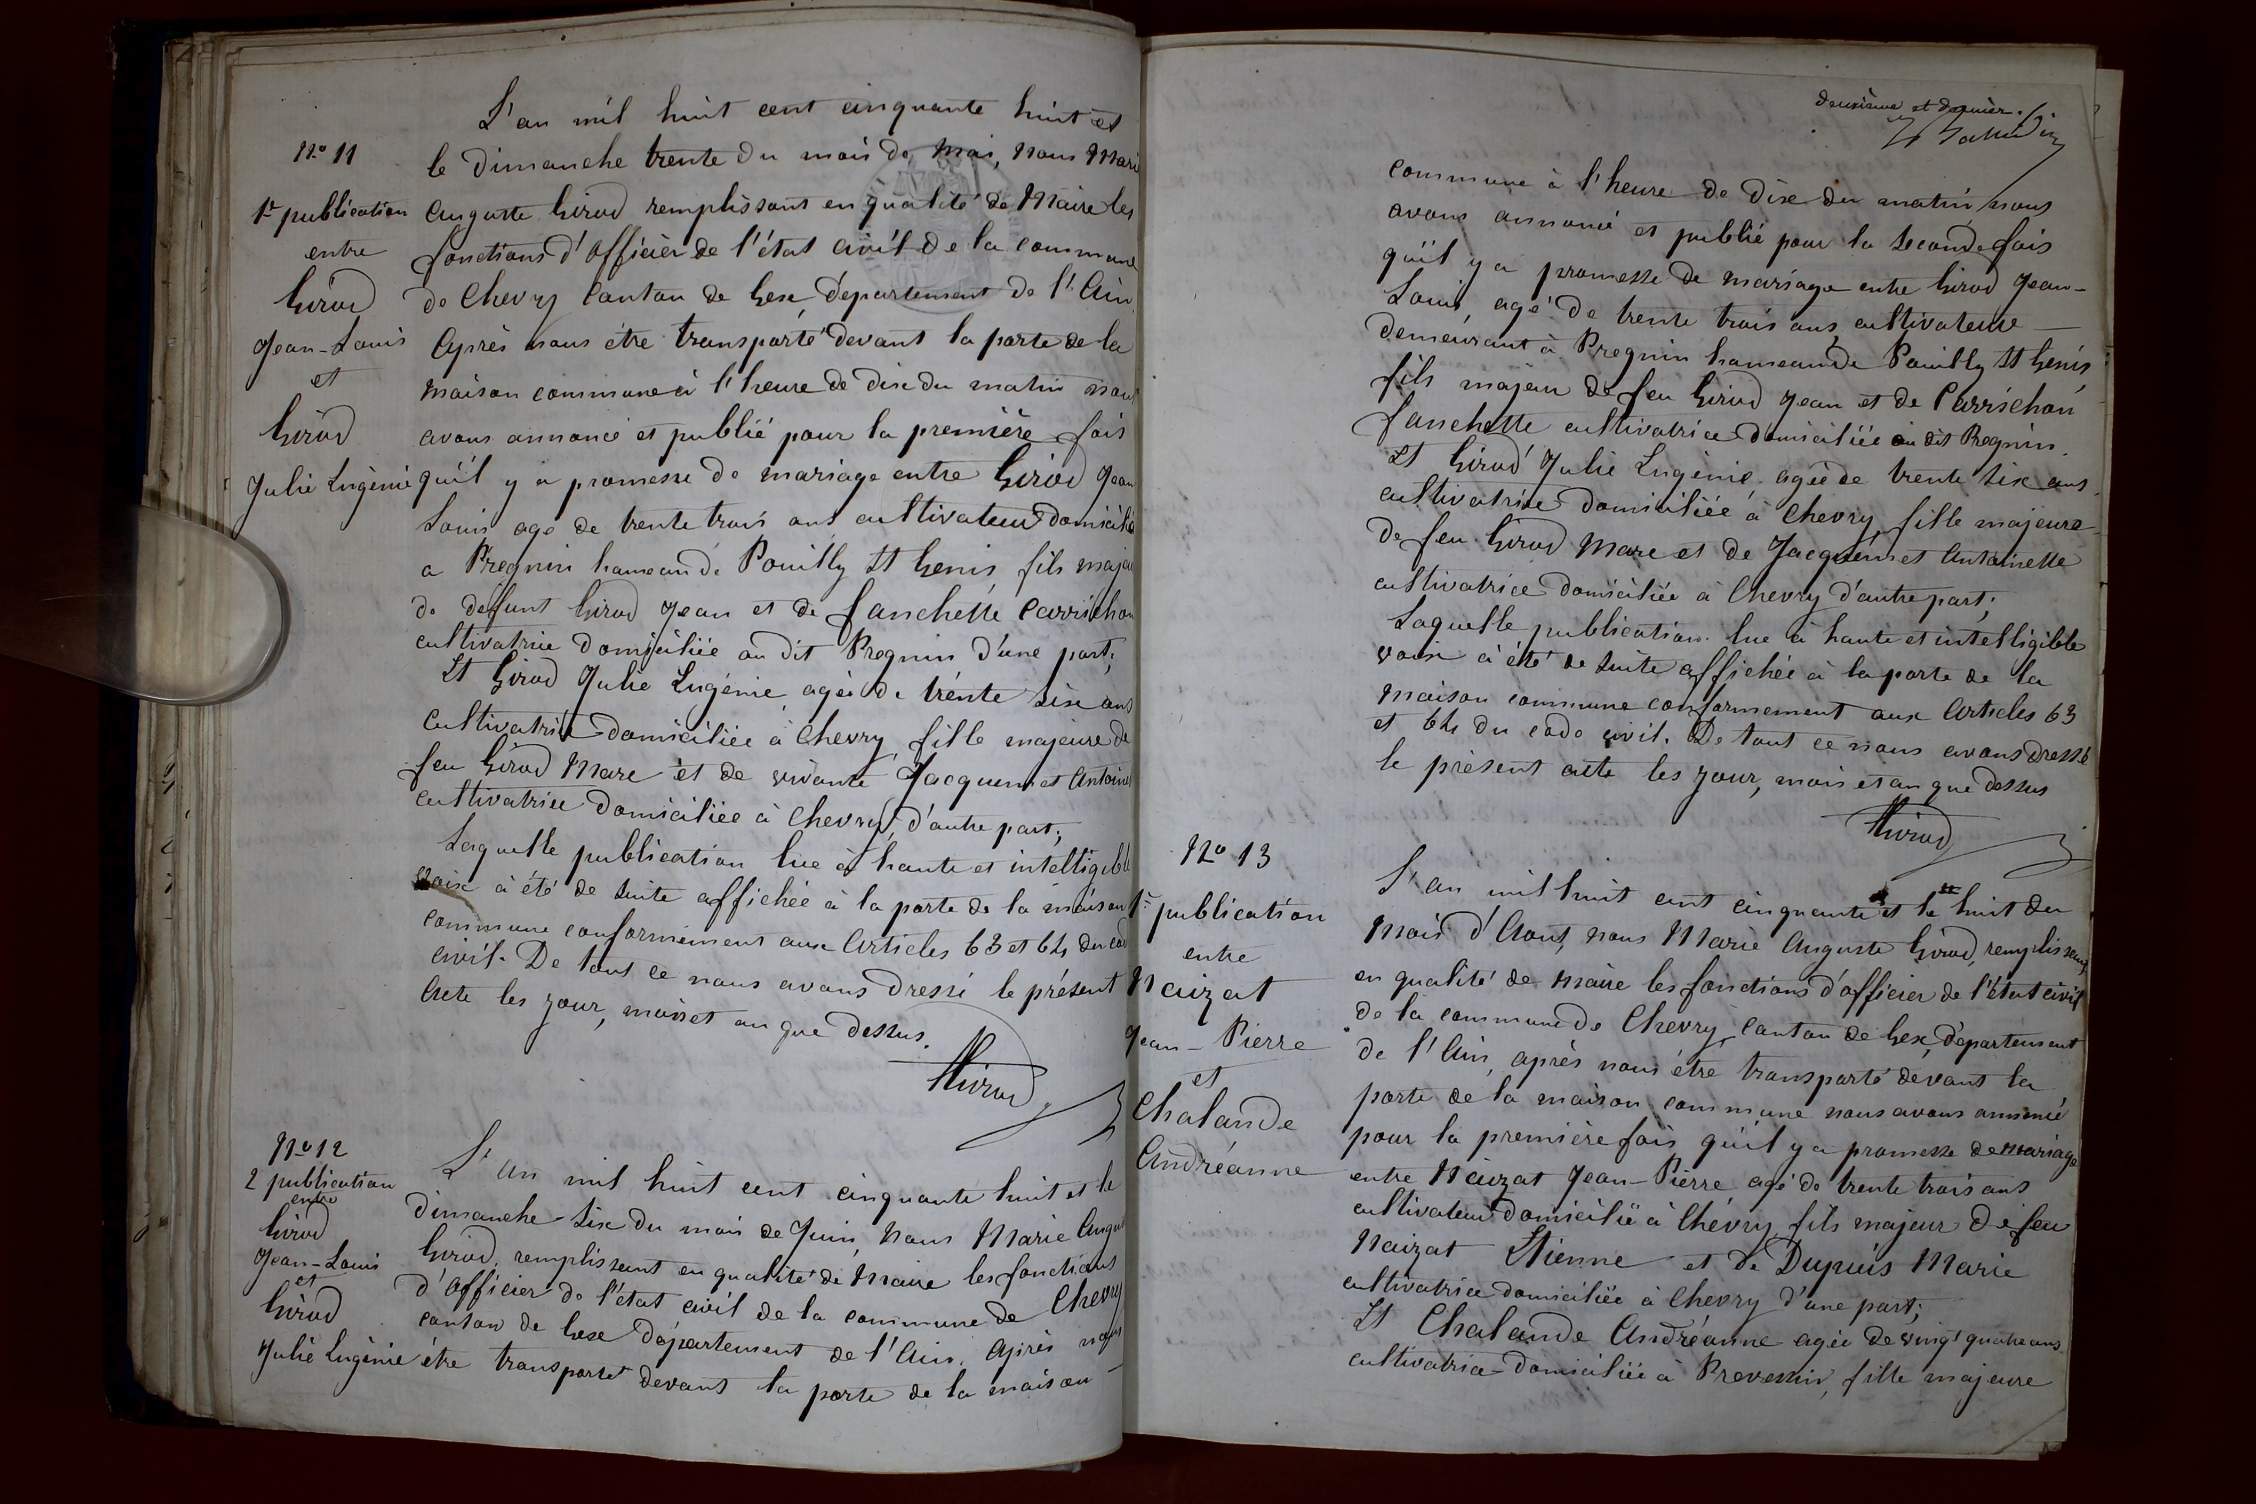 L'an mil huit cent cinquante huit et
No 11
le dimanche trente du mois de Mai, Nous Marie
1re publication
Auguste Girod remplissant en qualité de Maire les
entre
fonctions d'officier de l'état civil de la commune
Girod
de Chevry Canton de Gex département de l'Ain.
Jean-Louis
Après nous être transporté devant la porte de la
et
maison commune à l'heure de dix du matin nous
Girod
avons annoncé et publié pour la première fois
Julie Eugénie
qu'il y a promesse de mariage entre Girod Jean
Louis agé de trente trois ans cultivateur domicilié
a Pregnin hameau de Pouilly St Genis fils majeur
de defunt Girod Jean et de Fanchette Carrichon
cultivatrice domiciliée au dit Pregnin d'une part;
Et Girod Julie Eugénie, agée de trente six ans
Cultivatrice domiciliée à Chevry fille majeure de
feu Girod Marc et de vivante Jacquemet Antoine
cultivatrice domiciliée à Chevry, d'autre part;
Laquelle publication lue à haute et intelligible
voix à été de suite affichée à la porte de la maison
commune conformément aux Articles 63 et 64 du cod
civil. De tout ce nous avons dressé le présent
Acte les jour, mois et an que dessus.
Girod
No 12
2 publication
entre
Girod
Jean-Louis
et
Girod
Julie Eugénie
L'an mil huit cent cinquante huit et le
dimanche six du mois de Juin, Nous Marie Augu
Girod, remplissant en qualité de Maire les fonctions
d'officier de l'état civil de la commune de Chevry
canton de Gex Département de l'Ain. Après nous
être transporté devant la porte de la maison
deuxième et dernier.
commune à l'heure de dix du matin nous
avons annoncé et publié pour la seconde fois
qu'il y a promesse de mariage entre Girod Jean-
Louis, agé de trente trois ans, cultivateur
demeurant à Pregnin hameau de Pouilly St Genis,
fils majeur de feu Girod Jean et de Carrichon
Fanchette cultivatrice domiciliée au dit Pregnin.
Et Girod Julie Eugénie agée de trente six ans
cultivatrice domiciliée à Chevry, fille majeure
de feu Girod Marc et de Jacquemet Antoinette
cultivatrice domiciliée à Chevry d'autre part;
Laquelle publication lue à haute et intelligible
voix à été de suite affichée à la porte de la
maison commune conformement aux Articles 63
et 64 du code civil. De tout ce nous avons dressé
le présent acte les jour, mois et an que dessus
Girod
No 13
1re publication
entre
Naizat
Jean-Pierre
et
Chalande
Andréanne
L'an mil huit cent cinquante et le huit du
mois d'Aout, nous Marie Auguste Girod, remplissant
en qualité de Maire les fonctions d'officier de l'état civil
de la commune de Chevry, canton de Gex, département
de l'Ain, après nous être transporté devant la
porte de la maison commune nous avons annoncé
pour la première fois qu'il y a promesse de mariage
entre Naizat Jean-Pierre agé de trente trois ans
cultivateur domicilié à Chévry, fils majeur de feu
Naizat Etienne et de Dupuis Marie
cultivatrice domiciliée à Chevry d'une part;
Et Chalande Andréanne agée de vingt quatre ans
cultivatrice domiciliée à Prevessin, fille majeure